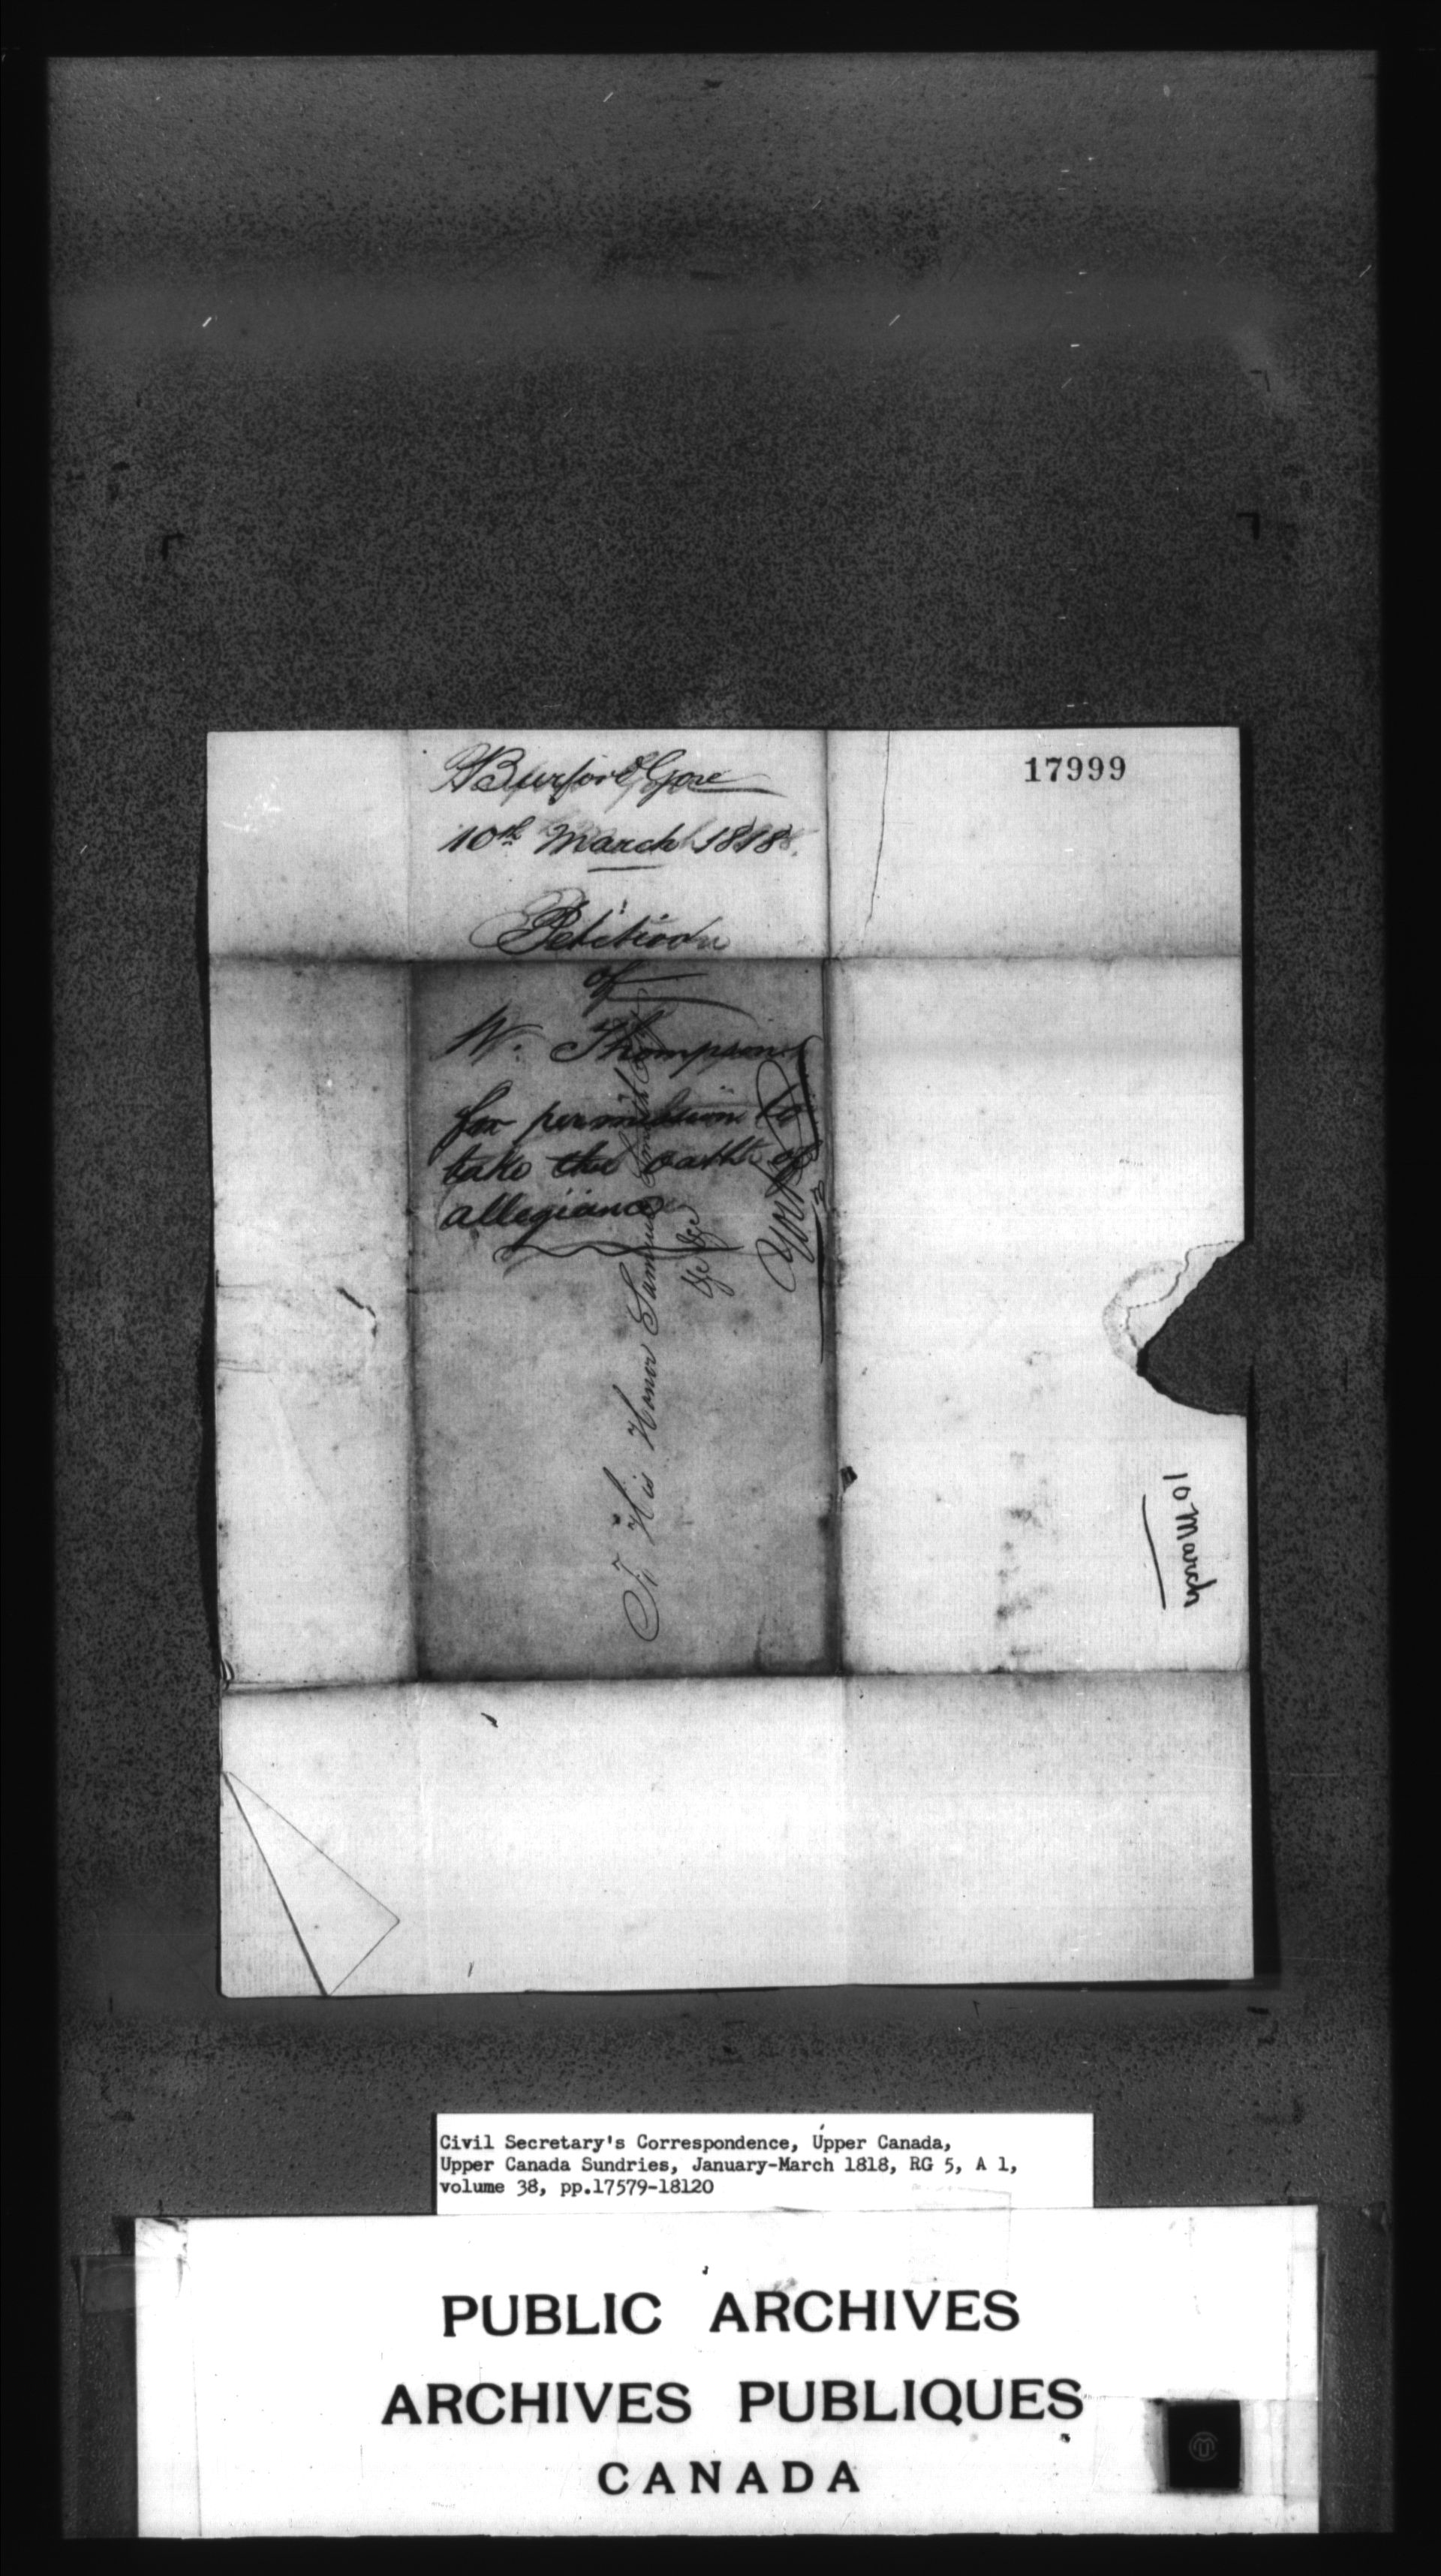 Burford Gore
10th March 1818.
Petition
of
W. Thompson
for permission to
take the oath of
allegiance
To His Honor Samuel Smith
&c &c
York
17999
10 March
Civil Secretary's Correspondence, Upper Canada,
Upper Canada Sundries, January-March 1818, RG 5, A 1,
volume 38, pp.17579-18120
PUBLIC ARCHIVES
ARCHIVES PUBLIQUES
CANADA